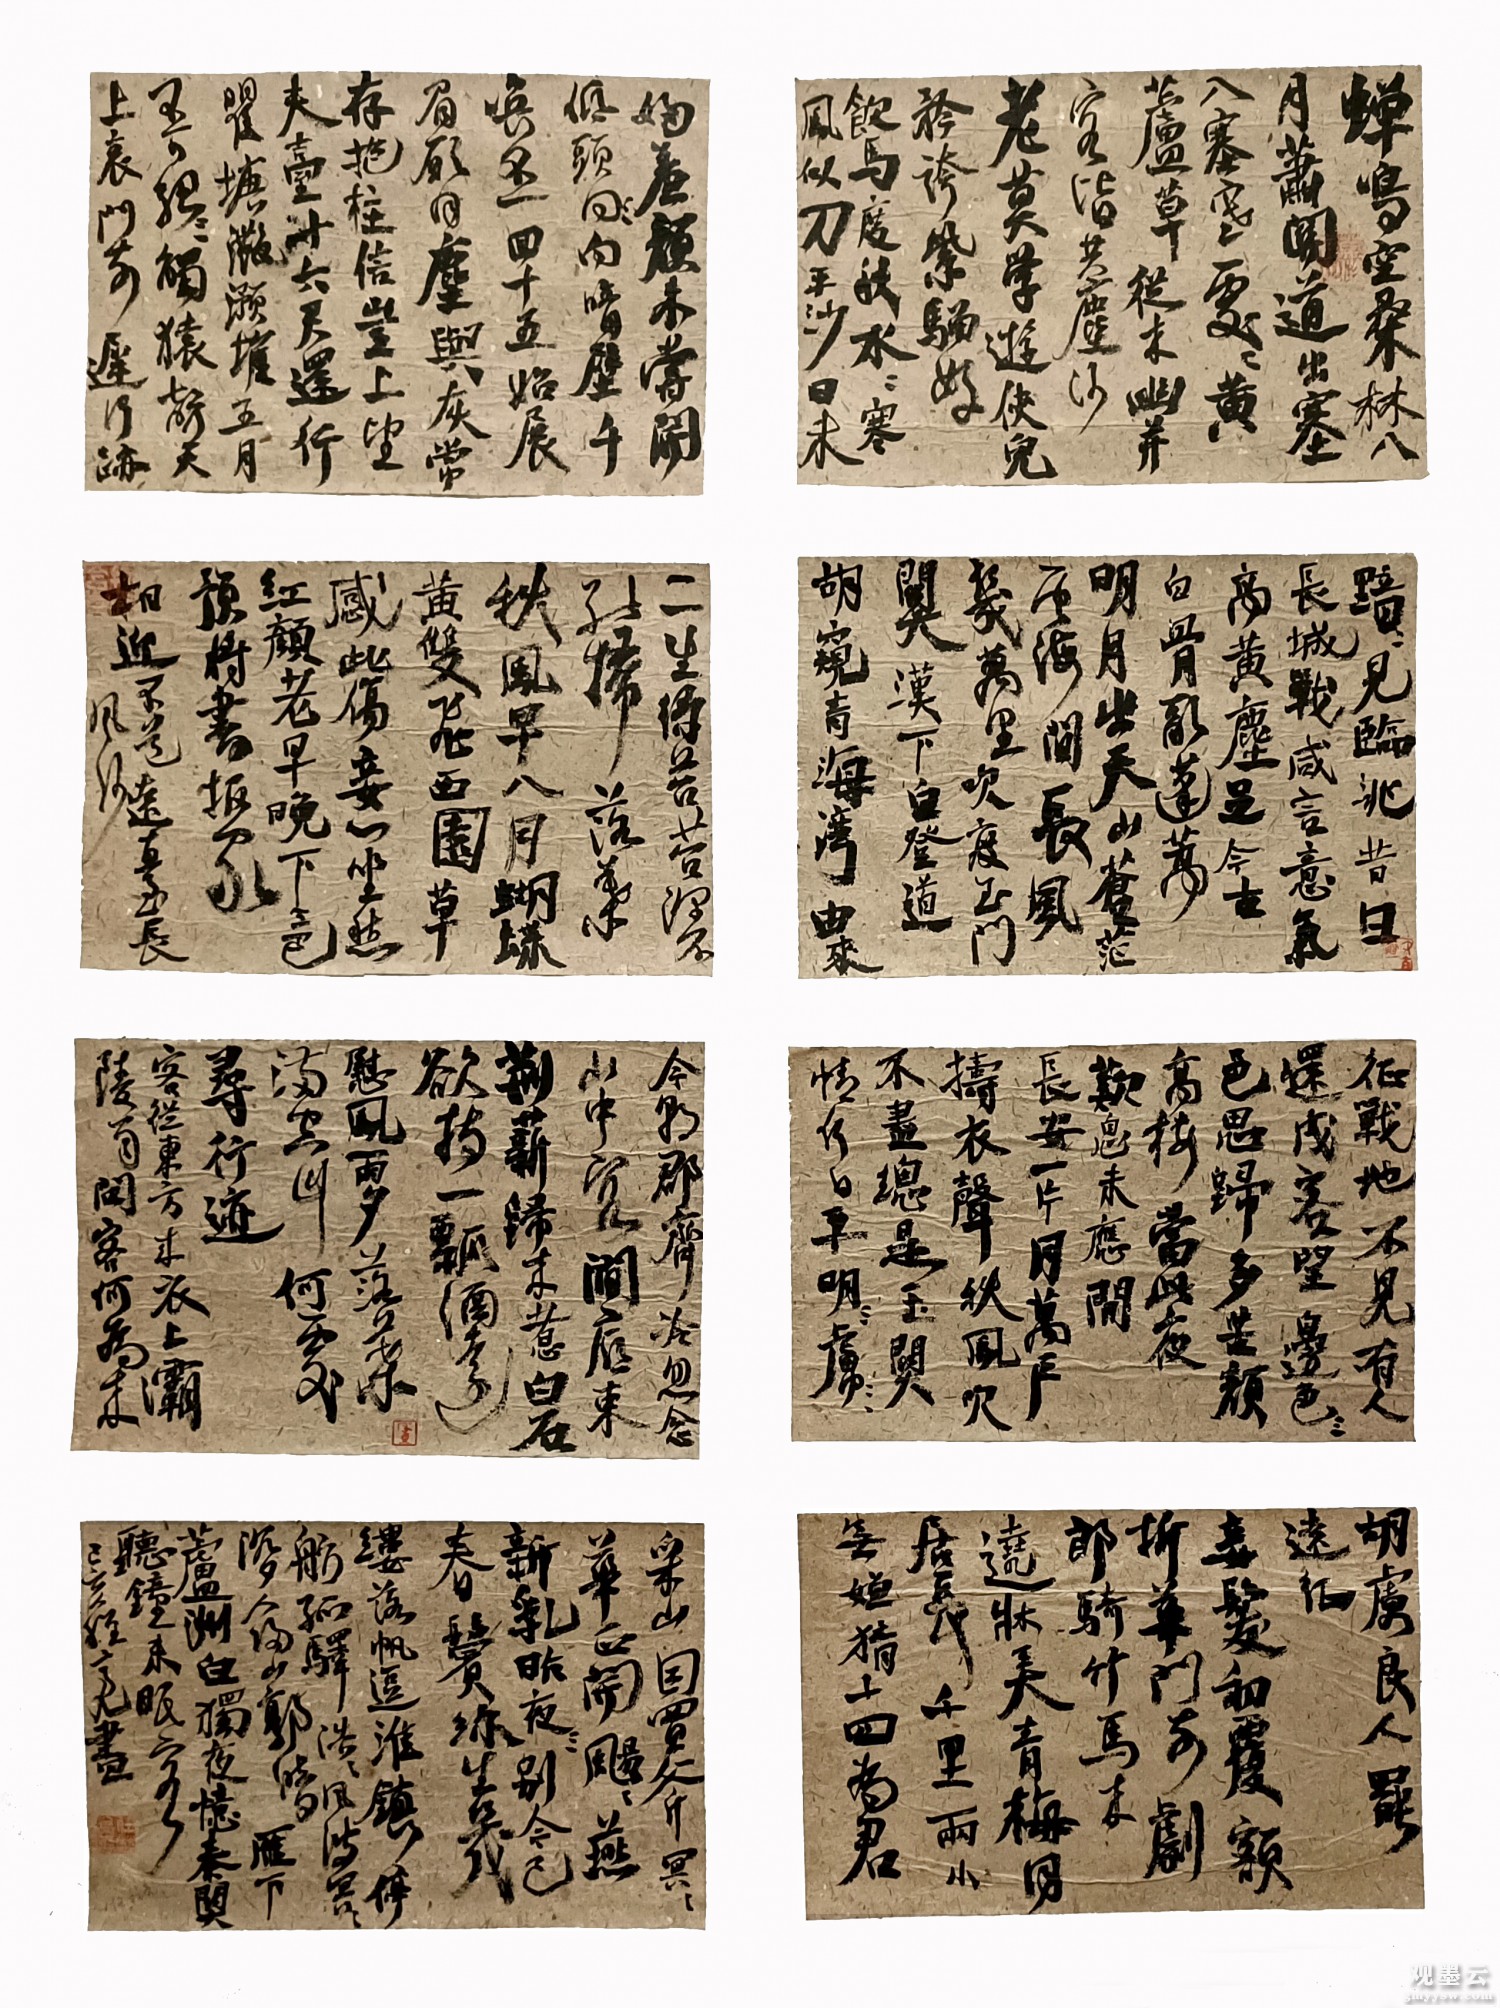 蟬鳴空桑林八
月蕭關道出塞
入塞寒處〻黃
蘆草從來幽并
客皆共塵沙
老莫學遊俠兒
矜誇紫騮好
飲馬度秋水〻寒
風似刀平沙日未
黯〻見臨洮昔日
長城戰咸言意氣
高黃塵足今古
白骨亂蓬蒿
明月出天山蒼茫
雲海間長風
幾萬里吹度玉門
關漢下白登道
胡窺青海灣由來
征戰地不見有人
還戍客望邊色〻
邑思歸多苦顏
高樓當此夜
歎息未應閒
長安一片月萬戶
擣衣聲秋風吹
不盡總是玉關
情何日平明〻虜〻
胡虜良人罷
遠征
妾髮初覆額
折華門前劇
郎騎竹馬來
遶牀弄青梅同
居長干里兩小
無嫌猜十四為君
婦羞顏未嘗開
低頭向〻向暗壁千
喚不一四十五始展
眉願同塵與灰常
存抱柱信豈上望
夫臺十六君遠行
瞿塘灩澦堆五月
不可觸〻觸猿聲天
上哀門前遲行跡
一一生綠苔苔深不
能掃落葉
秋風早八月蝴蝶
黃雙飛西園草
感此傷妾心坐愁
紅顏老早晚下三巴
預將書報家
相迎不道遠直至長
風沙
今朝郡齋冷忽念
山中客澗底束
荊薪歸來煮白石
欲持一瓢酒遠
慰風雨夕落葉
滿空山何處
尋行迹
客從東方來衣上灞
陵雨問客何為來
采山因買斧冥〻
華正開颺〻燕
新乳昨夜〻別今已
春鬢絲生幾
縷落帆逗淮鎮停
舫孤驛浩〻風波冥〻
沒人歸山郭暗雁下
蘆洲白獨夜憶秦關
聽鐘未眠客
己亥亮書
观墨云
gmyyow.com